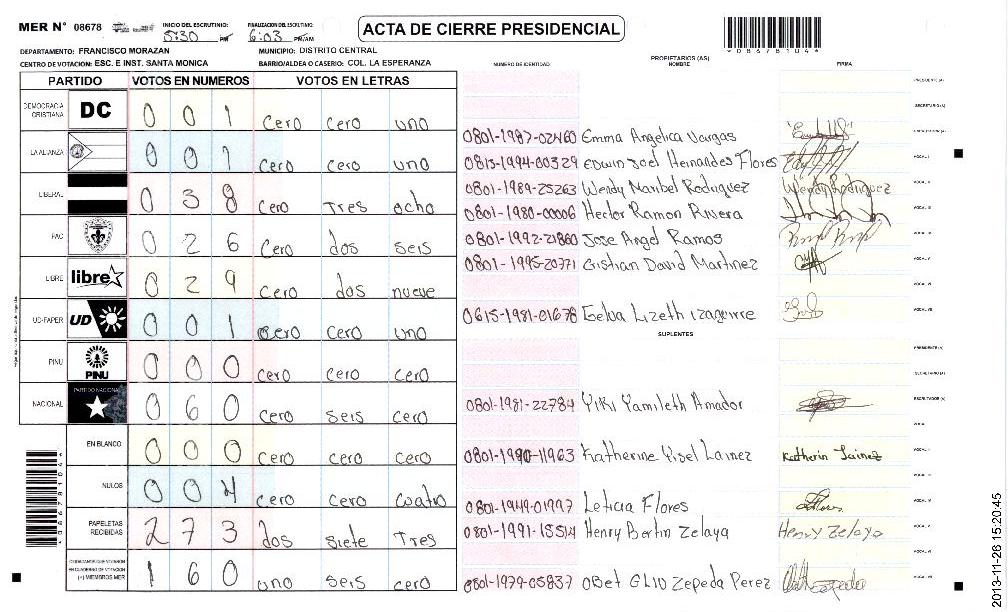 MER N° 08678 INICIO DEL ESCRUTINIO: 5:30 PM FINALIZACIÓN DEL ESCRUTINIO: 6:03 PM/AM
ACTA DE CIERRE PRESIDENCIAL
*08678104*
DEPARTAMENTO: FRANCISCO MORAZAN MUNICIPIO: DISTRITO CENTRAL
CENTRO DE VOTACIÓN: ESC. E INST. SANTA MONICA BARRIO/ALDEA O CASERIO: COL. LA ESPERANZA
PARTIDO VOTOS EN NUMEROS VOTOS EN LETRAS
DEMOCRACIA CRISTIANA DC 0 0 1 cero cero uno
LA ALIANZA 0 0 1 cero cero uno
LIBERAL 0 3 8 cero Tres ocho
PAC 0 2 6 cero dos seis
LIBRE libre 0 2 9 cero dos nueve
UD-FAPER UD 0 0 1 cero cero uno
PINU PINU 0 0 0 cero cero cero
NACIONAL PARTIDO NACIONAL 0 6 0 cero seis cero
EN BLANCO 0 0 0 cero cero cero
NULOS 0 0 4 cero cero cuatro
PAPELETAS RECIBIDAS 2 7 3 dos siete Tres
CIUDADANOS QUE VOTARON EN CUADERNO DE VOTACION (+) MIEMBROS MER 1 6 0 uno seis cero
NUMERO DE IDENTIDAD PROPIETARIOS (AS) NOMBRE FIRMA
PRESIDENTE (A)
SECRETARIO (A)
0801-1987-02460 Emma Angelica Vargas ESCRUTADOR (A)
0813-1994-00329 Edwin Joel Hernandes Flores VOCAL I
0801-1989-25263 Wendy Maribel Rodriguez Wendy Rodriguez VOCAL II
0801-1980-00006 Hector Ramon Rivera VOCAL III
0801-1992-21860 Jose Angel Ramos VOCAL IV
0801-1995-20771 Cristian David Martinez VOCAL V
VOCAL VI
0615-1981-01678 Gelva Lizeth izaguirre VOCAL VII
SUPLENTES
PRESIDENTE (A)
SECRETARIO (A)
0801-1981-22784 Yiki Yamileth Amador ESCRUTADOR (A)
VOCAL I
0801-1990-11963 Katherine Yisel Lainez Katherin Lainez VOCAL II
VOCAL III
0801-1949-01997 Leticia Flores VOCAL IV
0801-1991-15514 Henry Bertin Zelaya Henry Zelaya VOCAL V
VOCAL VI
0801-1979-05837 Obet Eliu Zepeda Perez VOCAL VII
*08678104*
2013-11-26 15:20:45